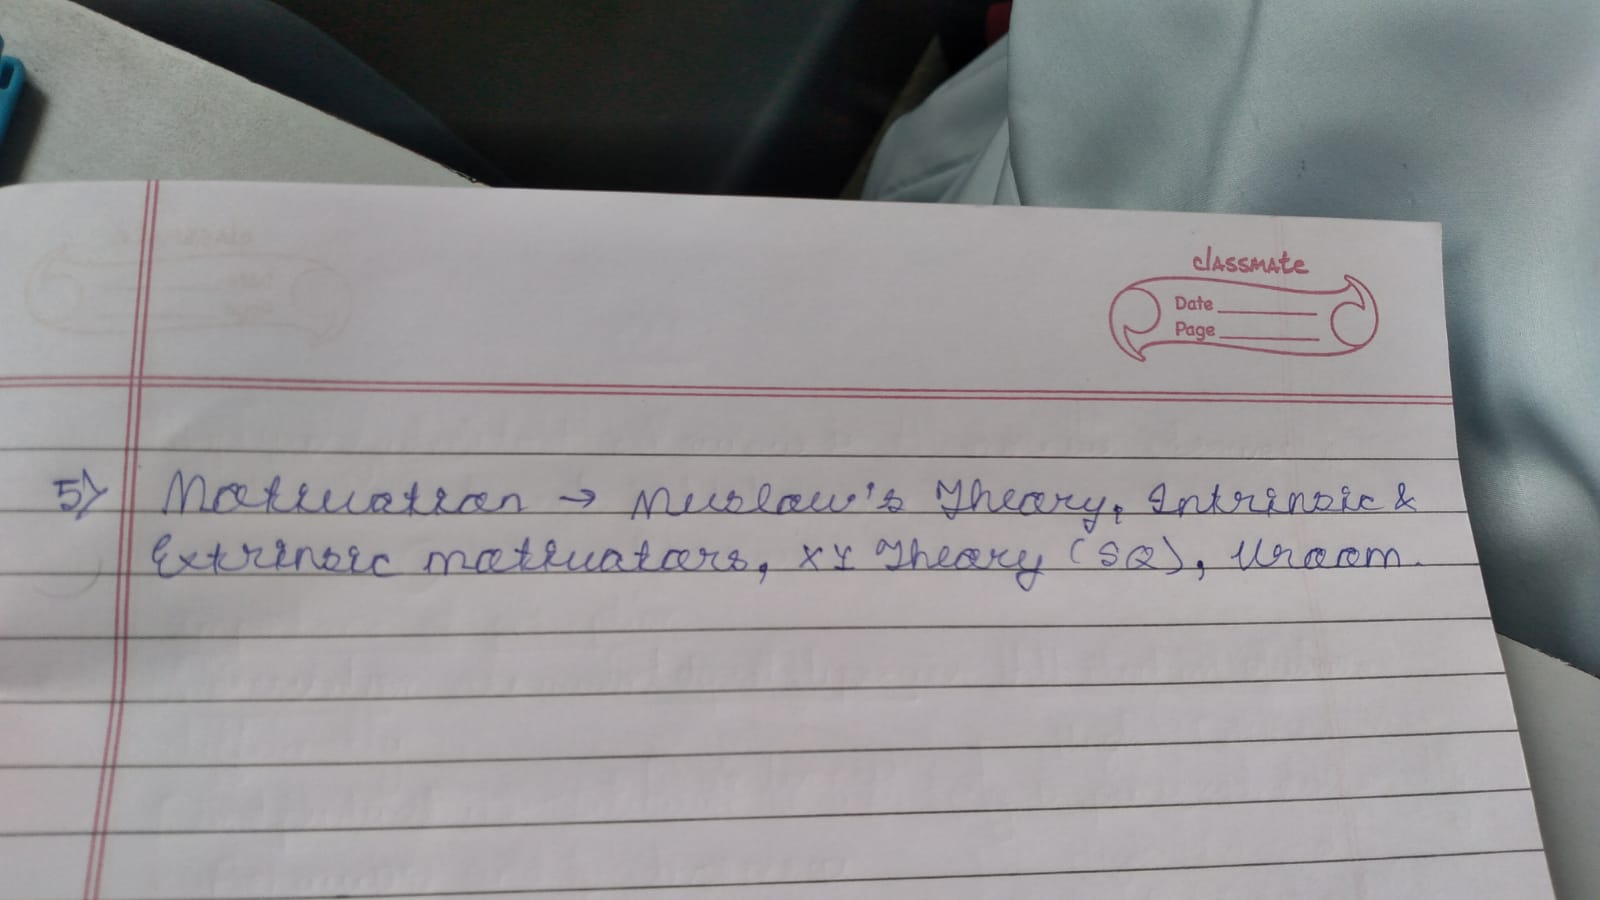 classmate
Date
Page
5) Motivation → Muslow's Theory, Intrinsic &
Extrinsic motivators, XY Theory (SQ), Vroom.